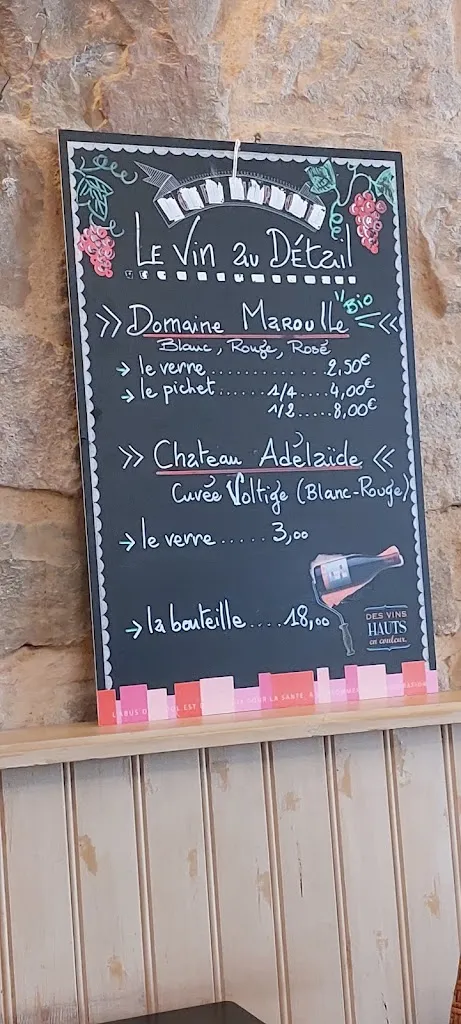 Le Vin au Détail
>> Domaine Maroulle << Bio
Blanc, Rouge, Rosé
→ le verre............2,50€
→ le pichet......1/4....4,00€
1/2.....8,00€
>> Chateau Adélaïde <<
Cuvée Voltige (Blanc-Rouge)
→ le verre.....3,00
→ la bouteille....18,00
DES VINS
HAUTS
en couleur
L'ABUS D'ALCOOL EST POUR LA SANTÉ, À